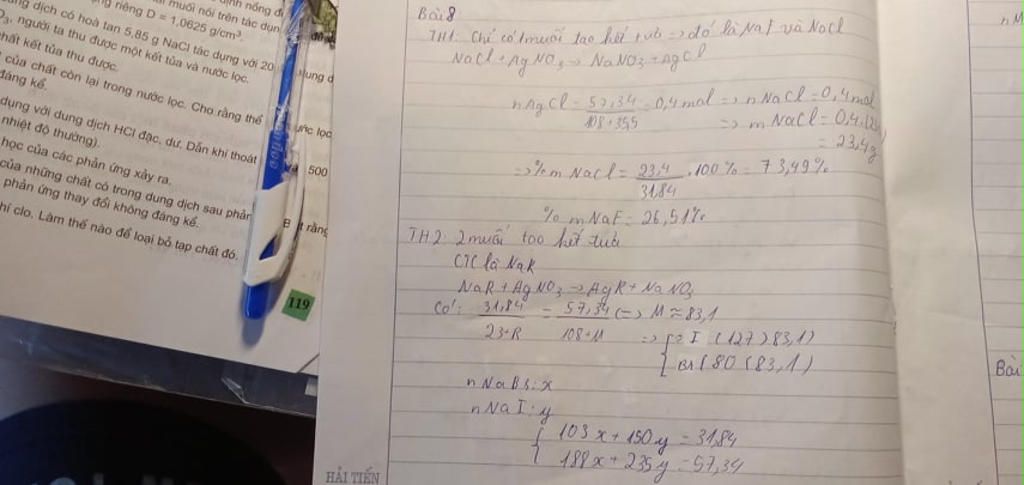 ng riêng D = 1,0625 g/cm³.
dịch có hoà tan 5,85 g NaCl tác dụng với 20
người ta thu được một kết tủa và nước lọc.
kết tủa thu được.
của chất còn lại trong nước lọc. Cho rằng thể
đáng kể.
dụng với dung dịch HCl đặc, dư. Dẫn khí thoát
500
nhiệt độ thường).
học của các phản ứng xảy ra.
của những chất có trong dung dịch sau phản
phản ứng thay đổi không đáng kể.
clo. Làm thế nào để loại bỏ tạp chất đó.
119
Bài 8
TH1: Chỉ có 1 muối tạo kết tủa => đó là NaF và NaCl
NaCl + AgNO3 -> NaNO3 + AgCl
nAgCl = 57,34 / 108+35,5 = 0,4 mol => nNaCl = 0,4 mol
=> mNaCl = 0,4.
= 23,4g
=> %mNaCl = 23,4 / 31,84 . 100% = 73,49%
%mNaF = 26,51%
TH2: 2 muối tạo kết tủa
CTC là NaR
NaR + AgNO3 -> AgR + NaNO3
Có: 31,84 / 23+R = 57,34 / 108+M (=> M ≈ 83,1
=> { I (127 > 83,1)
Br (80 < 83,1)
nNaBr: x
nNaI: y
{ 103x + 150y = 31,84
188x + 235y = 57,34
HẢI TIẾN
Bài